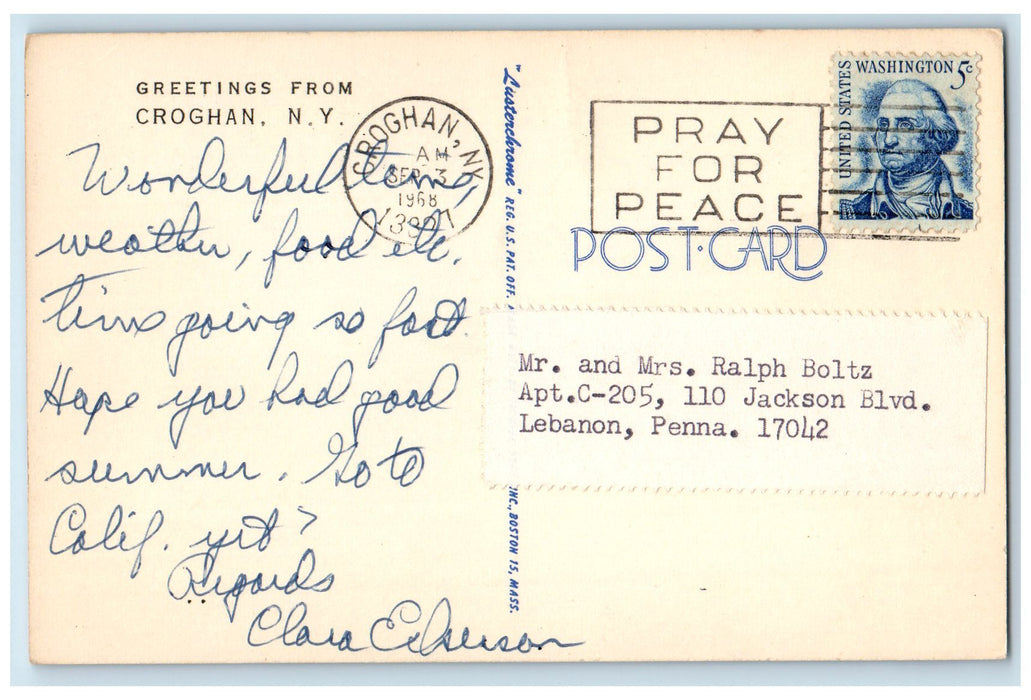 GREETINGS FROM
CROGHAN, N.Y.
CROGHAN, NY
AM
SEP 3
1968
13327
Wonderful time,
weather, food etc.
Time going so fast.
Hope you had good
summer. Go to
Calif. yet?
Regards
Clara
"Lusterchrome" REG. U.S. PAT. OFF.
INC., BOSTON 15, MASS.
PRAY
FOR
PEACE
UNITED STATES
WASHINGTON 5c
POST·CARD
Mr. and Mrs. Ralph Boltz
Apt.C-205, 110 Jackson Blvd.
Lebanon, Penna. 17042